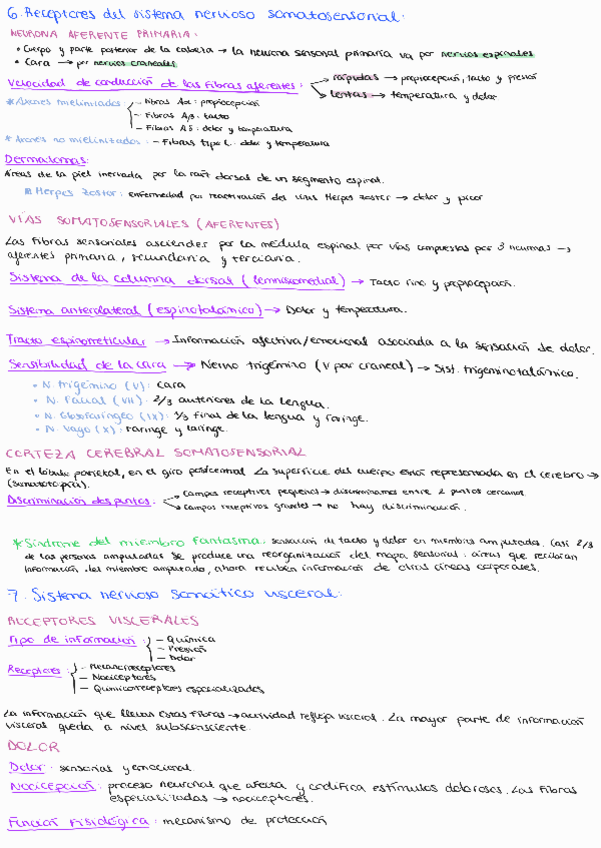 6. Receptores del sistema nervioso somatosensorial:
NEURONA AFERENTE PRIMARIA:
• Cuerpo y parte posterior de la cabeza → la neurona sensorial primaria va por nervios espinales
• Cara → por nervios craneales
Velocidad de conducción de las fibras aferentes: → rápidas → propiocepción, tacto y presión
→ lentas → temperatura y dolor
* Axones mielinizados: – Fibras Aα: propiocepción
– Fibras Aβ: tacto
– Fibras Aδ: dolor y temperatura
* Axones no mielinizados: – Fibras tipo C: dolor y temperatura
Dermatomas:
Áreas de la piel inervada por la raíz dorsal de un segmento espinal.
Herpes Zoster: enfermedad por reactivación del virus Herpes zoster → dolor y picor
VÍAS SOMATOSENSORIALES (AFERENTES)
Las fibras sensoriales ascienden por la médula espinal por vías compuestas por 3 neuronas →
aferentes primaria, secundaria y terciaria.
Sistema de la columna dorsal (lemniscomedial) → Tacto fino y propiocepción.
Sistema anterolateral (espinotalámico) → Dolor y temperatura.
Tracto espinorreticular → Información afectiva/emocional asociada a la sensación de dolor.
Sensibilidad de la cara → Nervio trigémino (V par craneal) → Sist. trigeminotalámico.
• N. Trigémino (V): cara
• N. Facial (VII): 2/3 anteriores de la lengua.
• N. Glosofaríngeo (IX): 1/3 final de la lengua y faringe.
• N. Vago (X): faringe y laringe.
CORTEZA CEREBRAL SOMATOSENSORIAL
En el lóbulo parietal, en el giro postcentral. La superficie del cuerpo está representada en el cerebro →
(somatotopía).
Discriminación dos puntos: → campos receptivos pequeños → discriminamos entre 2 puntos cercanos.
→ campos receptivos grandes → no hay discriminación.
* Síndrome del miembro fantasma: sensación de tacto y dolor en miembros amputados. Casi 2/3
de las personas amputadas se produce una reorganización del mapa sensorial: áreas que recibían
información del miembro amputado, ahora reciben información de otras áreas corporales.
7. Sistema nervioso somático visceral:
RECEPTORES VISCERALES
Tipo de información: – Química
– Presión
– Dolor
Receptores: – Mecanorreceptores
– Nociceptores
– Quimiorreceptores especializados
La información que llevan estas fibras → actividad refleja visceral. La mayor parte de información
visceral queda a nivel subconsciente.
DOLOR
Dolor: sensorias y emocional
Nocicepción: proceso neuronal que afecta y codifica estímulos dolorosos. Las fibras
especializadas → nociceptores.
Función fisiológica: mecanismo de protección